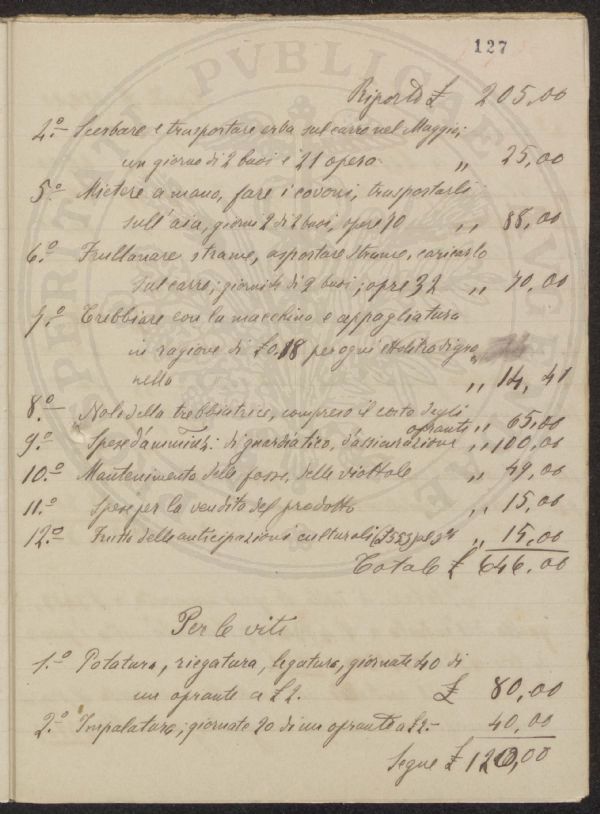 127
Riporto £ 205,00
4.° Scerbare e trasportare erba sul carro nel Maggio;
un giorno di 2 buoi e 21 opera " 25,00
5.° Mietere a mano, fare i covoni, trasportarli
sull'aia, giorni 2 di 2 buoi, opere 70 " 88,00
6.° Frullanare strame, asportare strame, caricarlo
sul carro; giorni 4 di 2 buoi; opre 32 " 70,00
7.° Trebbiare con la macchina e appagliatura
in ragione di £0.18 per ogni ettolitro di gra
nella " 14,41
8.° Nolo della trebbiatrice, compreso il costo degli
opranti " 65,00
9.° Spese d'ammin: di guardiatico, d'assicurazione " 100,00
10.° Mantenimento delle fosse, delle viottole " 49,00
11.° Spese per la vendita del prodotto " 15,00
12.° Frutti delle anticipazioni culturali " 15,00
Totale £ 646,00
Per le viti
1.° Potatura, legatura, giornate 40 di
un oprante a £2. £ 80,00
2.° Impalatura; giornate 20 di un oprante a £2.- 40,00
Segue £ 120,00
PERITATI PVBLICAE